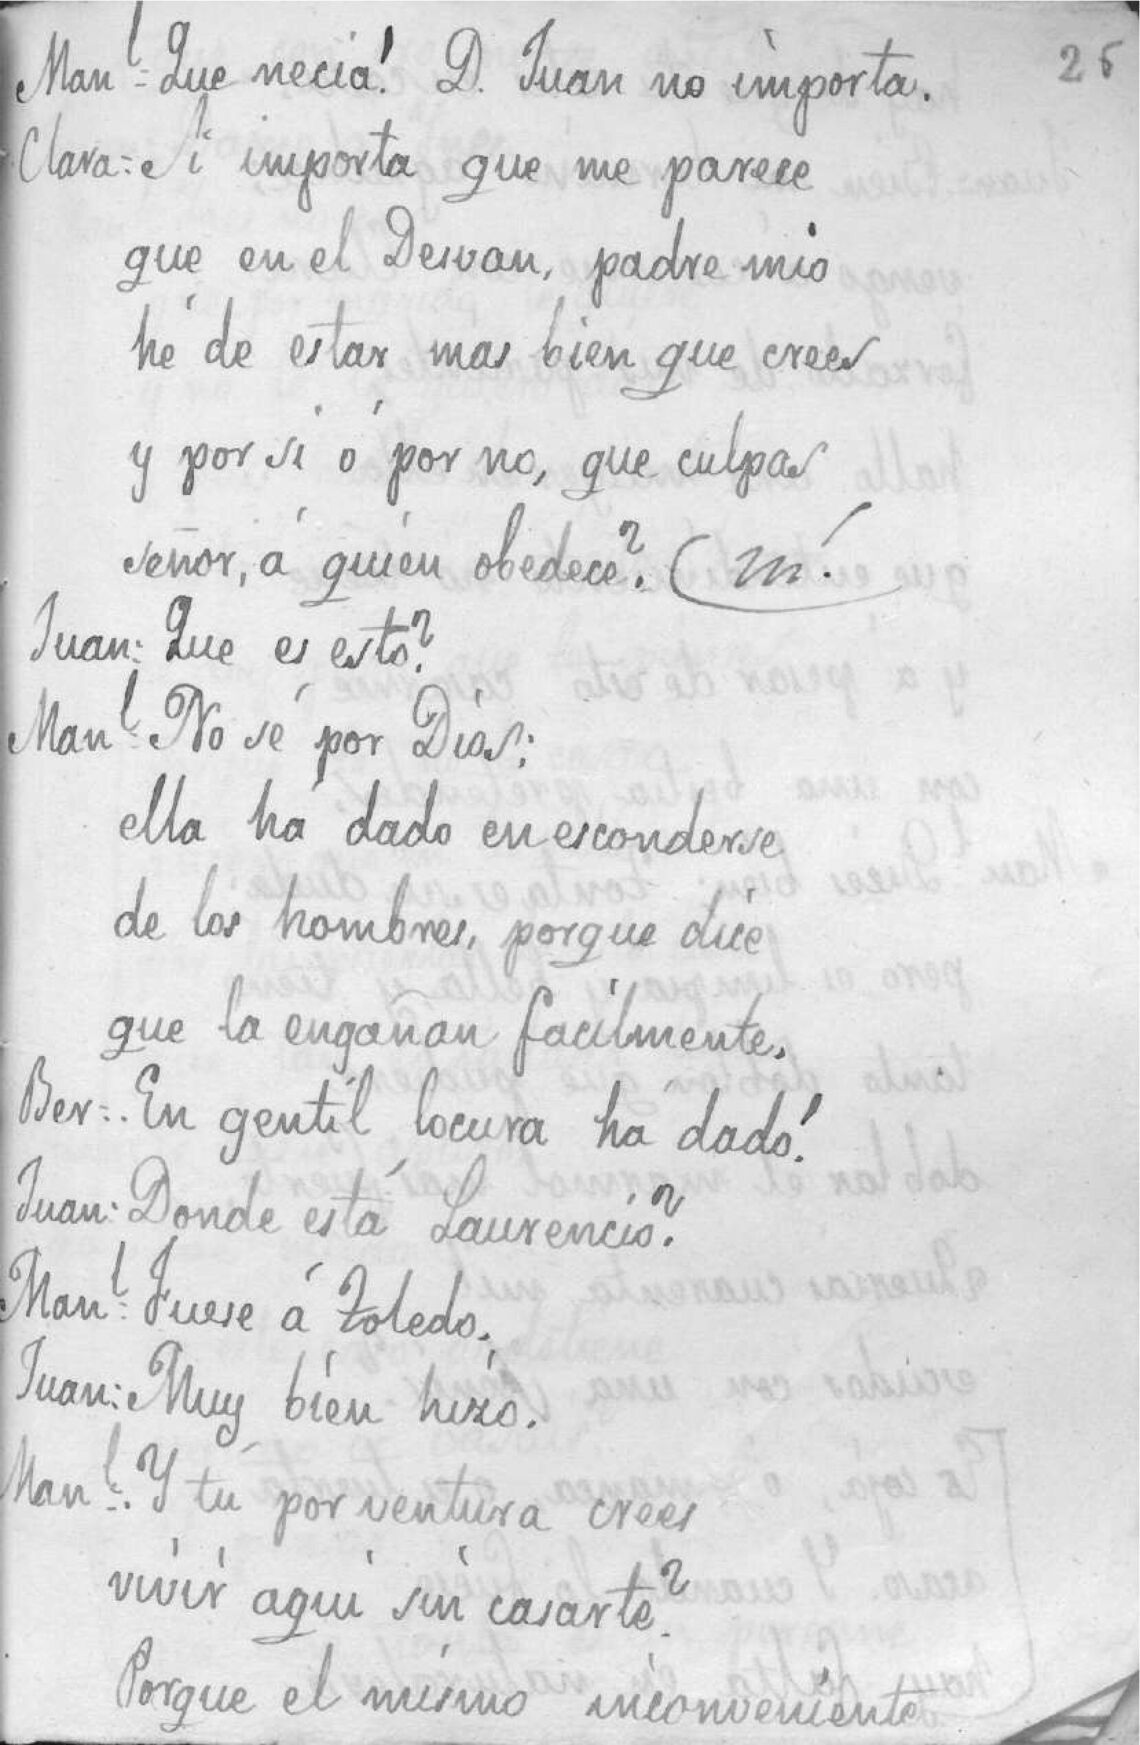 26
Manl= Que necia! D. Juan no importa.
Clara= Si importa que me parece
que en el Desvan, padre mio
hé de estar mas bien que crees
y por si ó por no, que culpas
señor, á quien obedece? (m.
Juan: Que es esto?
Manl= No sé por Dios;
ella ha dado en esconderse
de los hombres, porque dice
que la engañan facilmente.
Ber=. En gentil locura ha dado!
Juan: Donde está Laurencio?
Manl= Fuese á Toledo.
Juan: Muy bien hizo.
Manl=. Y tú por ventura crees
vivir aqui sin casarte?
Porque el mismo inconveniente